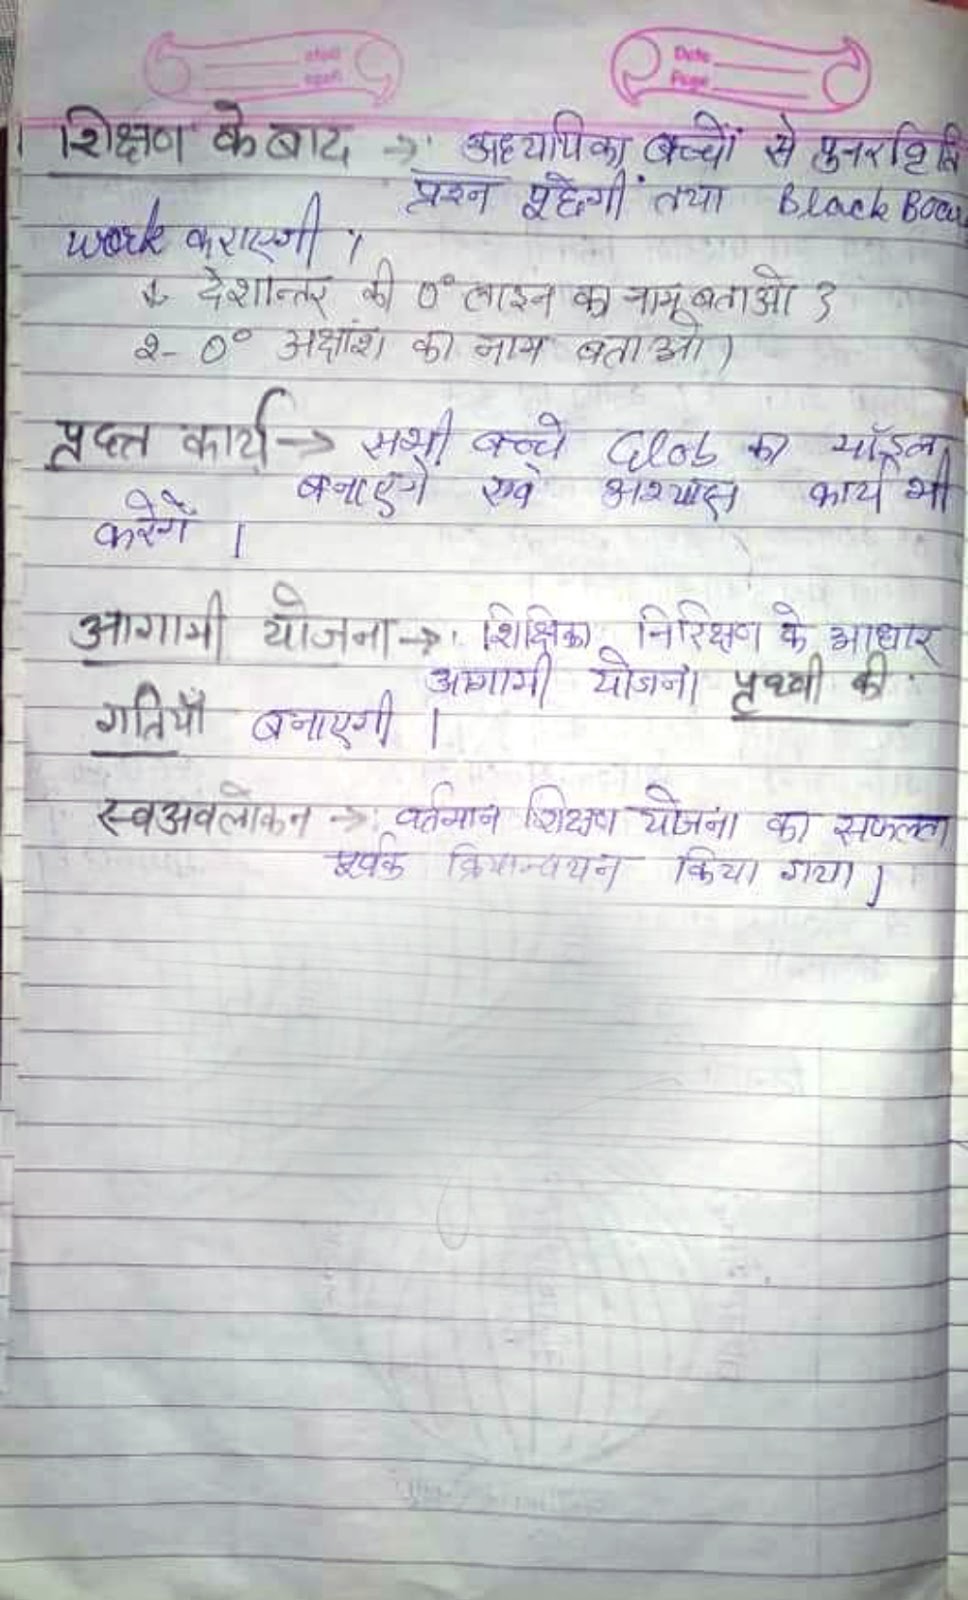 Date
Page
शिक्षण के बाद → अध्यापिका बच्चों से पुनरावृति
प्रश्न पूछेगी तथा Black Boar
work कराएगी ।
1- देशान्तर की 0° लाइन का नाम बताओ ?
2- 0° अक्षांश का नाम बताओ ।
प्रदत्त कार्य → सभी बच्चे Glob का मॉडल
बनाएगे एवं अभ्यास कार्य भी
करेगें ।
आगामी योजना → शिक्षिका निरिक्षण के आधार
आगामी योजना पृथ्वी की
गतियाँ बनाएगी ।
स्वअवलोकन → वर्तमान शिक्षण योजना का सफलता
पूर्वक क्रियान्वयन किया गया ।